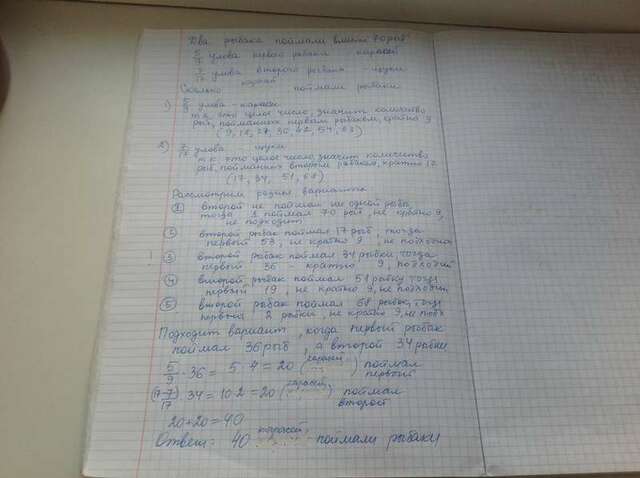 Два рыбака поймали вместе 70 рыб
5/9 улова первого рыбака караси
7/17 улова второго рыбака - щуки
Сколько карасей поймали рыбаки
1) 5/9 улова - караси
т к это целое число, значит количество
рыб, пойманных первым рыбаком, кратно 9
(9, 18, 27, 36, 42, 54, 63)
2) 7/17 улова - щуки
т к это целое число, значит количество
рыб, пойманных вторым рыбаком, кратно 17
(17, 34, 51, 68)
Рассмотрим разные варианты
① второй не поймал ни одной рыбы,
тогда 1 поймал 70 рыб, не кратно 9,
не подходит
② второй рыбак поймал 17 рыб, тогда
первый 53, не кратно 9, не подходит
③ второй рыбак поймал 34 рыбки тогда
первый 36 - кратно 9, подходит
④ второй рыбак поймал 51 рыбку тогда
первый 19, не кратно 9, не подходит
⑤ второй рыбак поймал 68 рыбок, тогда
первый 2 рыбки, не кратно 9, не подх
Подходит вариант, когда первый рыбак
поймал 36 рыб, а второй 34 рыбки
5/9 · 36 = 5 · 4 = 20 (карасей) поймал
первый
(17-7)/17 · 34 = 10·2 = 20 (карасей) поймал
второй
20+20=40
Ответ: 40 карасей поймали рыбаки